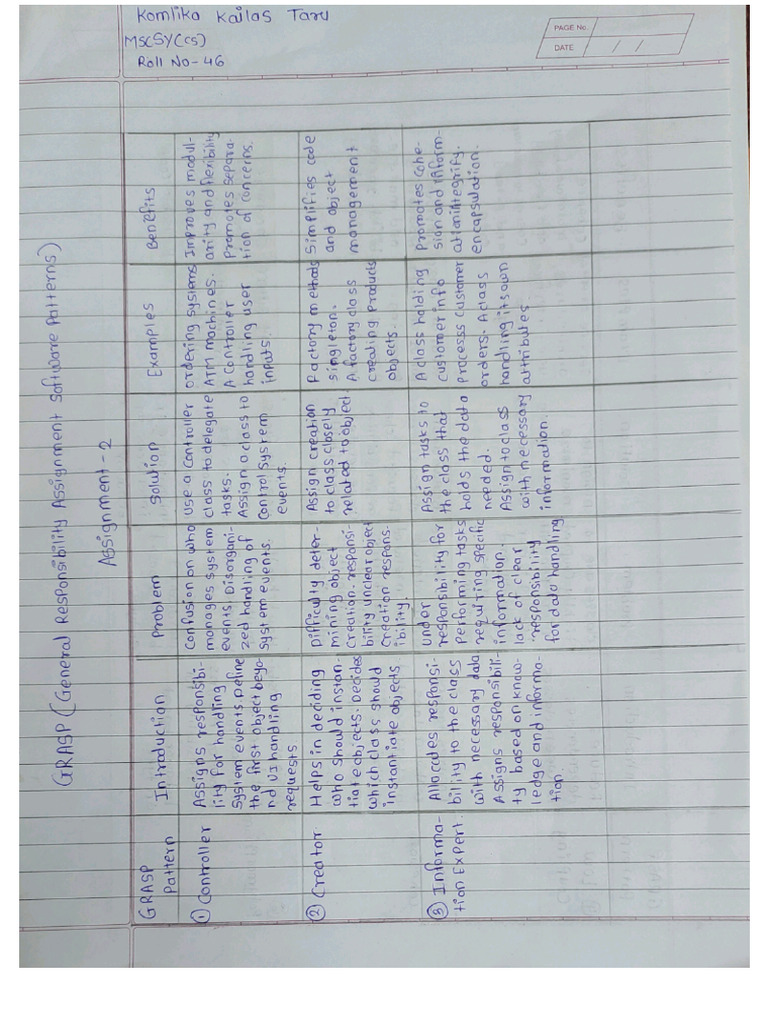 Komlika Kailas Taru
MSCSY(CS)
Roll No-46
PAGE No.
DATE / /
GRASP (General Responsibility Assignment Software Patterns)
Assignment-2
GRASP
Pattern
Introduction
Problem
Solution
Examples
Benefits
① Controller
Assigns responsibi-
lity for handling
System events. Define
the first object beyo-
nd UI handling
requests
Confusion on who
manages system
events. Disorgani-
zed handling of
system events.
Use a Controller
class to delegate
tasks.
Assign a class to
Control System
events.
Ordering systems
ATM machines.
A Controller
handling user
inputs.
Improves modul-
arity and flexibility
Promotes separa-
tion of concerns.
② Creator
Helps in deciding
who should instan-
tiate objects. Decides
which class should
instantiate objects
Difficulty deter-
mining object
Creation. responsi-
bility unclear object
Creation respons-
ibility.
Assign creation
to class closely
related to object.
Factory methods
singleton.
A factory class
creating products
objects.
Simplifies code
and object
management
③ Informa-
tion Expert.
Allocates responsi-
bility to the class
with necessary data
Assigns responsibili-
ty based on know-
ledge and informa-
tion.
under
responsibility for
performing tasks
requiring specific
information.
lack of clear
responsibility
for data handling
Assign tasks to
the class that
holds the data
needed.
Assign to class
with necessary
information.
A class holding
customer info
processes customer
orders. A class
handling its own
attributes
Promotes cohe-
sion and inform-
ation integrity.
encapsulation.